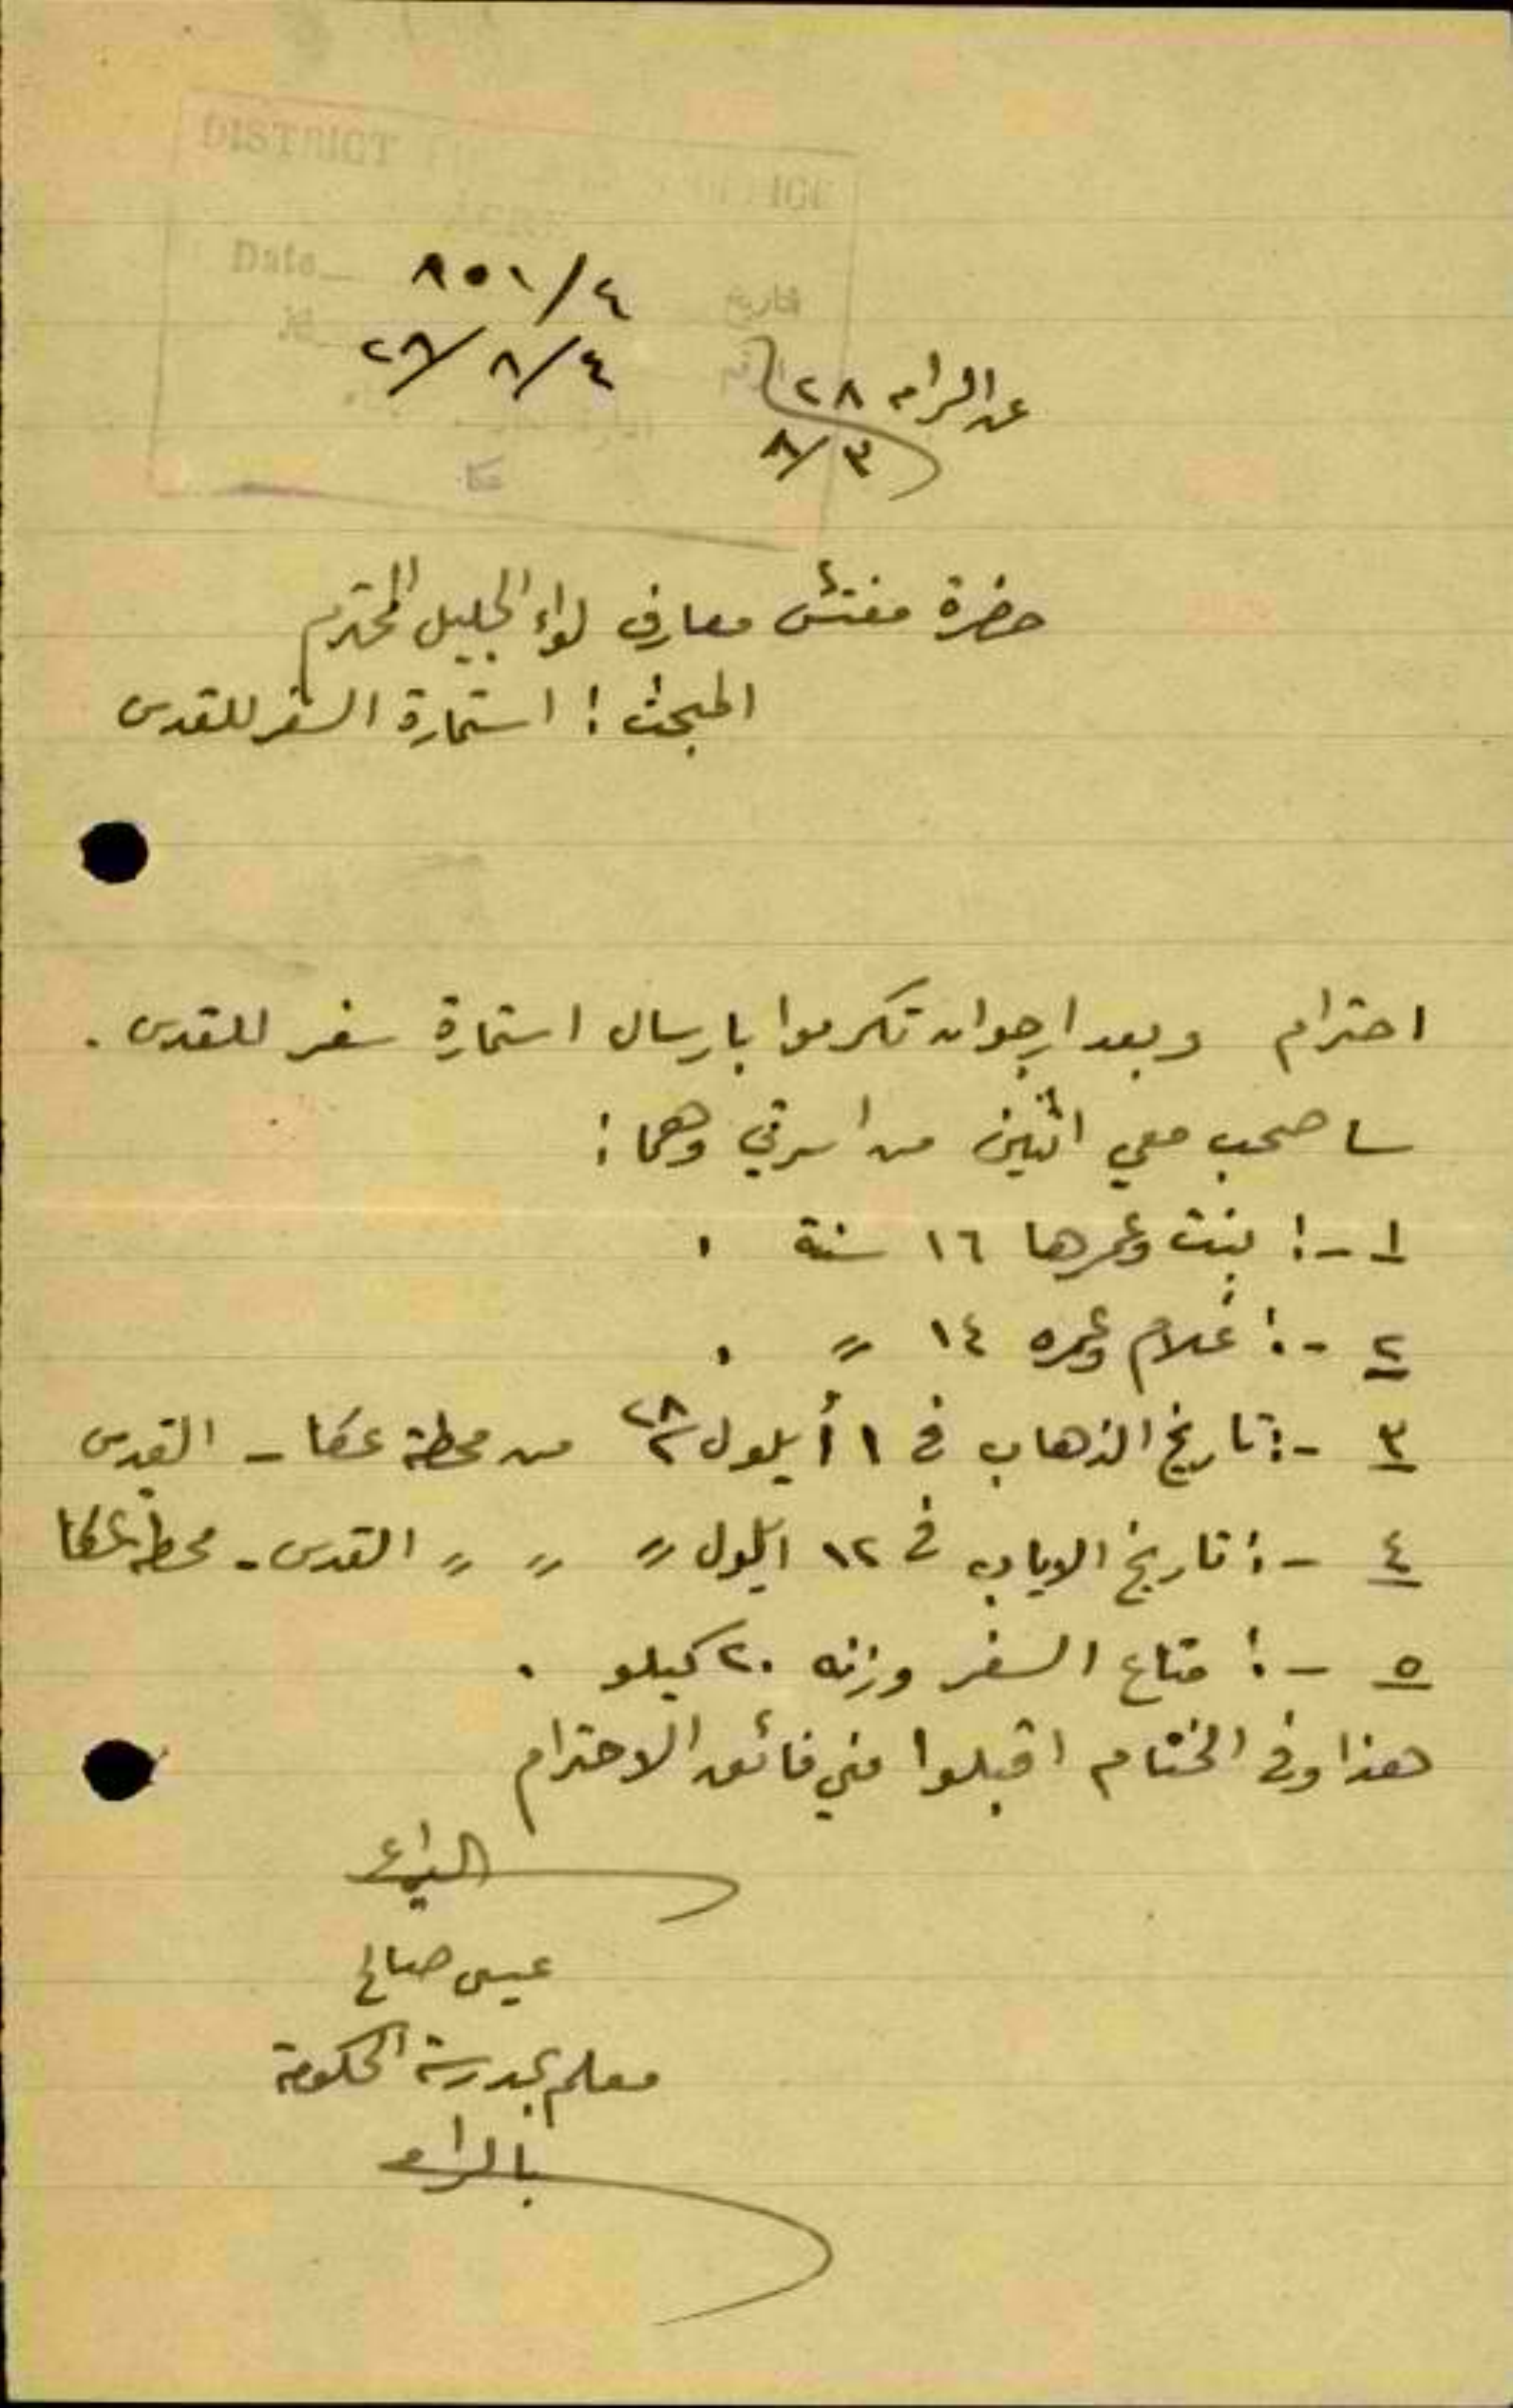 DISTRICT
Date
تاريخ
عكا
٨٥١/٤
٢٨/٨/٤
عن الرامه ٢٨
٨/٣
حضرة مفتش معارف لواء الجليل المحترم
المبحث : استمارة السفر للقدس
احترام وبعد ارجوان تكرموا بارسال استمارة سفر للقدس .
ساصحب معي اثنين من اسرتي وهما :
١ -: بنت وعمرها ١٦ سنة .
٢ -: غلام وعمره ١٤ " .
٣ -: تاريخ الذهاب في ١ أيلول ٢٨ من محطة عكا - القدس
٤ -: تاريخ الاياب في ١٢ ايلول " " " القدس - محطة عكا
٥ -: متاع السفر وزنه ٢٠ كيلو .
هذا وفي الختام اقبلوا مني فائق الاحترام
الداعي
عيسى صالح
معلم بمدرسة الحكومة
بالرامه